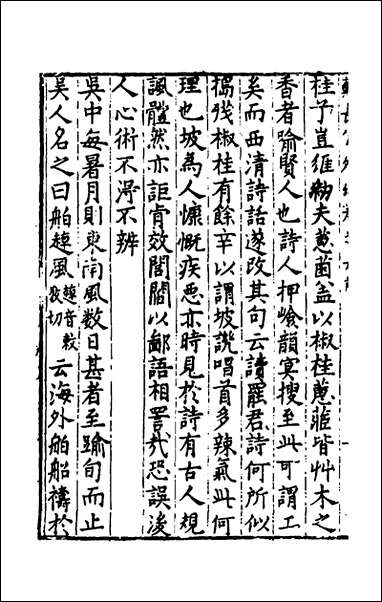 桂子豈維紉夫蕙茝盆以椒桂蕙茝皆艸木之
香者喻賢人也詩人押嶮韻冥搜至此可謂工
矣而西清詩話遂改其句云讀罷君詩何所似
搗殘椒桂有餘辛以謂坡譏唱首多辣氣此何
理也坡為人慷慨疾惡亦時見於詩有古人規
諷體然亦詎肯效閭閻以鄙語相詈哉恐誤後
人心術不淂不辨
吳中每暑月則東南風数日甚者至踰旬而止
吳人名之曰舶趠風趠音教敦切云海外舶船禱於